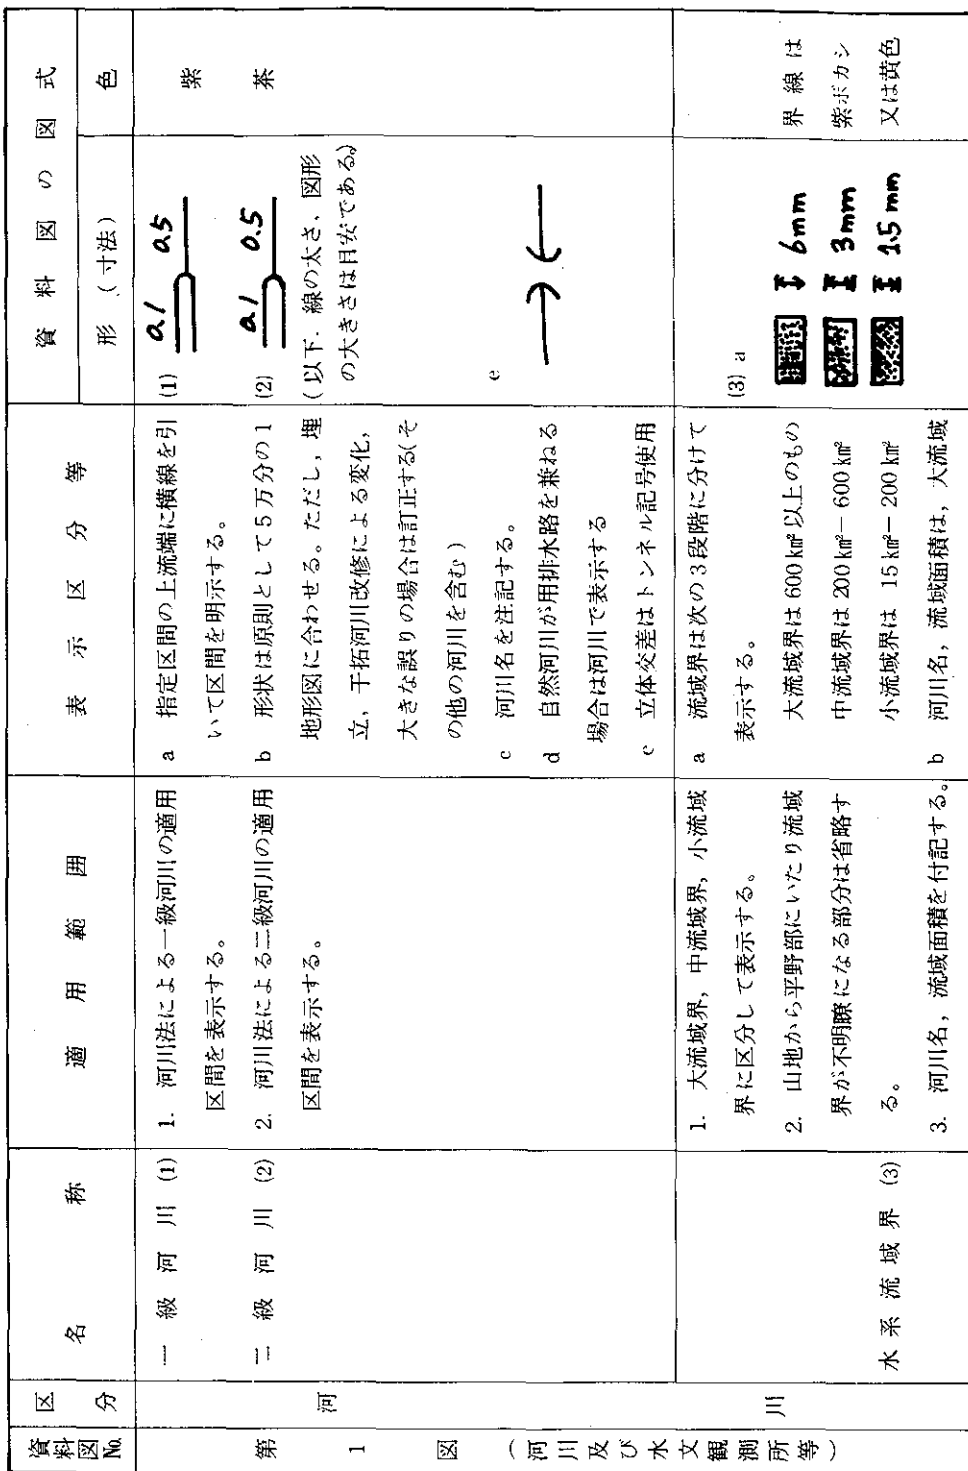 資料図No.
区分
名称
適用範囲
表示区分等
資料図の図式
形(寸法)
色
第1図(河川及び水文観測所等)
河川
一級河川 (1)
二級河川 (2)
1. 河川法による一級河川の適用
区間を表示する。
2. 河川法による二級河川の適用
区間を表示する。
a 指定区間の上流端に横線を引
いて区間を明示する。
b 形状は原則として5万分の1
地形図に合わせる。ただし,埋
立,干拓河川改修による変化,
大きな誤りの場合は訂正する(そ
の他の河川を含む)
c 河川名を注記する。
d 自然河川が用排水路を兼ねる
場合は河川で表示する
e 立体交差はトンネル記号使用
(1) 0.1 0.5
(2) 0.1 0.5
(以下.線の太さ,図形
の大きさは目安である。)
e
紫
茶
水系流域界 (3)
1. 大流域界,中流域界,小流域
界に区分して表示する。
2. 山地から平野部にいたり流域
界が不明瞭になる部分は省略す
る。
3. 河川名,流域面積を付記する。
a 流域界は次の3段階に分けて
表示する。
大流域界は600㎢以上のもの
中流域界は200㎢−600㎢
小流域界は 15㎢−200㎢
b 河川名,流域面積は,大流域
(3) a
6mm
3mm
1.5mm
界線は
紫ボカシ
又は黄色